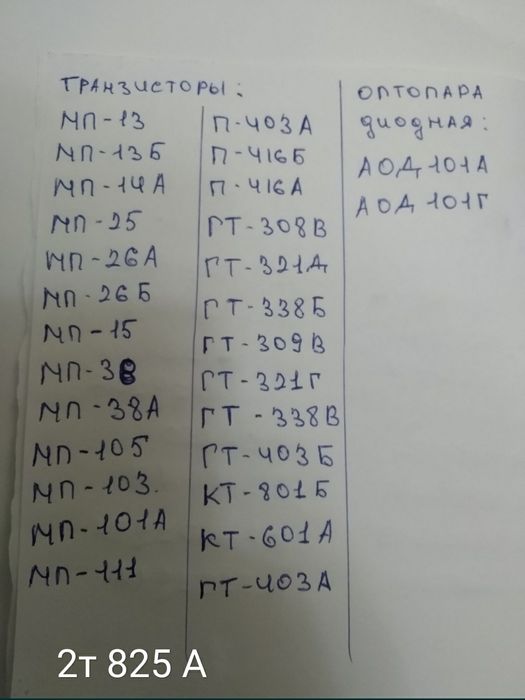 ТРАНЗИСТОРЫ:
МП-13
МП-13Б
МП-14А
МП-25
МП-26А
МП-26Б
МП-15
МП-38
МП-38А
МП-105
МП-103.
МП-101А
МП-111
П-403А
П-416Б
П-416А
ГТ-308В
ГТ-321Д
ГТ-338Б
ГТ-309В
ГТ-321Г
ГТ-338В
ГТ-403Б
КТ-801Б
КТ-601А
ГТ-403А
ОПТОПАРА
ДИОДНАЯ:
АОД 101А
АОД 101Г
2т 825 А